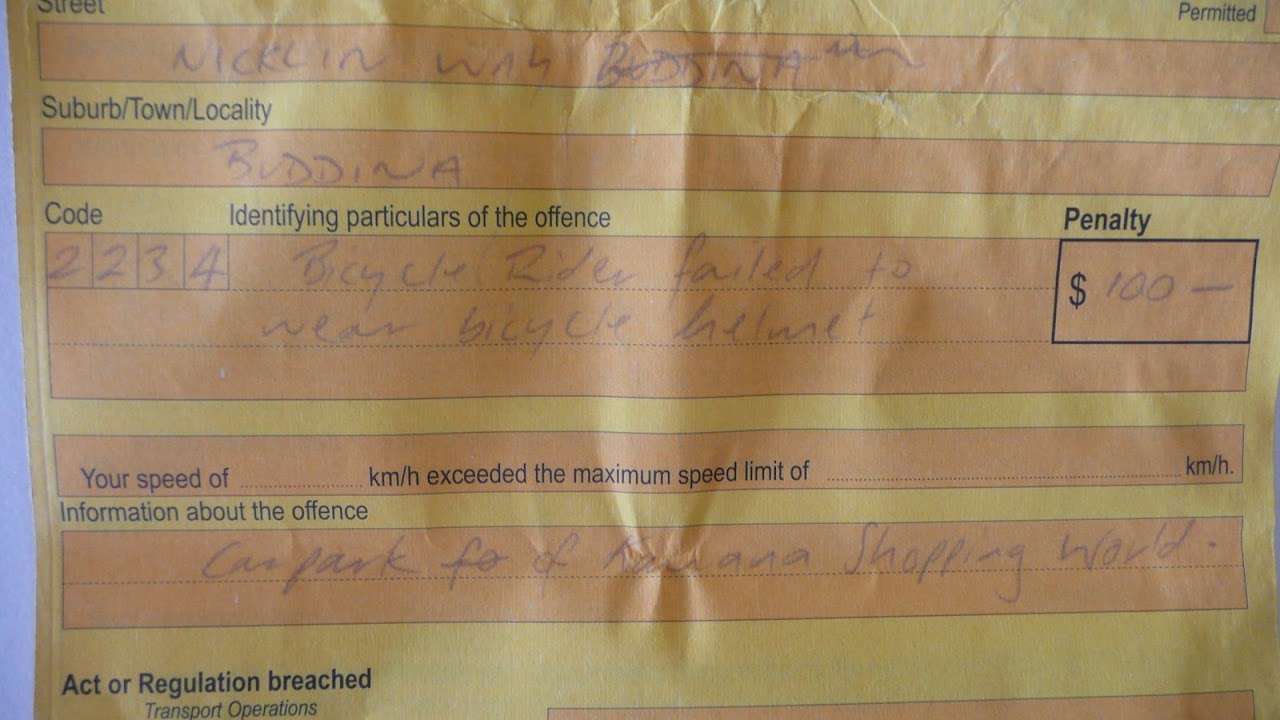 Street
Permitted
NICKLIN WAY BUDDINA
Suburb/Town/Locality
BUDDINA
Code Identifying particulars of the offence Penalty
2234 Bicycle Rider failed to
$ 100 —
wear bicycle helmet
Your speed of .................... km/h exceeded the maximum speed limit of .................... km/h.
Information about the offence
Carpark of Kawana Shopping World.
Act or Regulation breached
Transport Operations